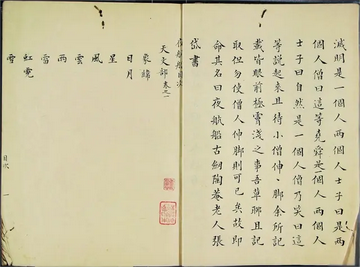 滅明是一個人兩個人士子曰是兩
個人僧曰這等堯舜是一個人兩個人
士子曰自然是一個人僧乃笑曰這
等說起來且待小僧伸伸腳余所記
載皆眼前極膚淺之事吾輩聊且記
取但勿使僧人伸腳則可已矣故即
命其名曰夜航船古劍陶菴老人張
岱書
天文部卷之一
象緯
日月
星
風
雲
雨
雷
虹霓
目次